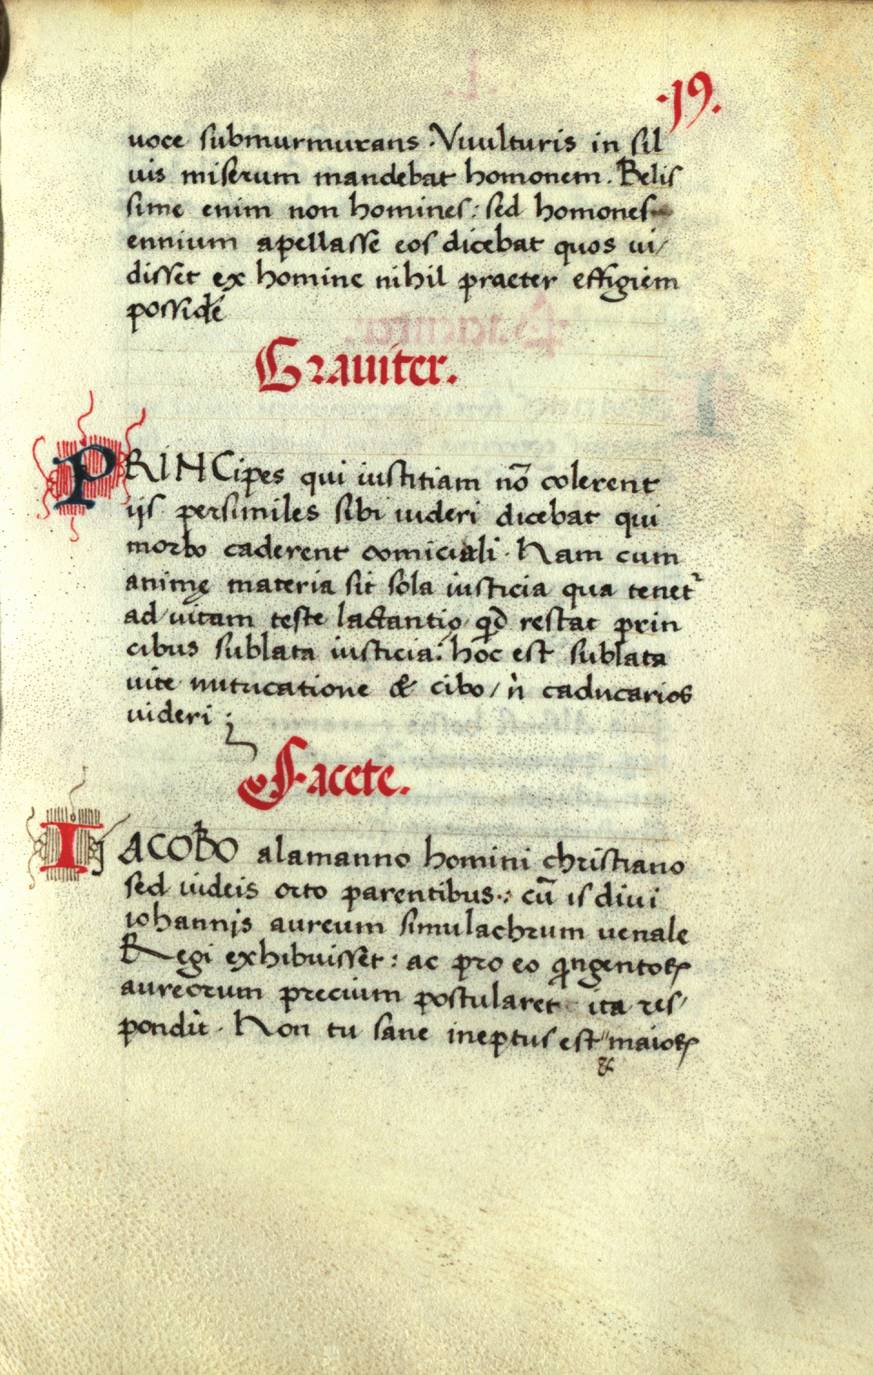 ·19·
uoce submurmurans · Vuulturis in sil
uis miserum mandebat homonem. Belis
sime enim non homines: sed homones
ennium apellasse eos dicebat quos ui/
disset ex homine nihil praeter effigiem
possidē
Grauiter.
PRINCipes qui iustitiam nō colerent
ijs persimiles sibi uideri dicebat qui
morbo caderent comiciali · Nam cum
animę materia sit sola iusticia qua tenet᷑
ad uitam teste lactantio, qd restat prin
cibus sublata iusticia: hoc est sublata
uite nutricatione & cibo / ni caducarios
uideri ;
Facete.
IACOBO alamanno homini christiano
sed iudeis orto parentibus: cū is diui
iohannis aureum simulachrum uenale
Regi exhibuisset: ac pro eo qingentoꝝ
aureorum precium postularet ita res/
pondit · Non tu sane ineptus est maioꝝ
&